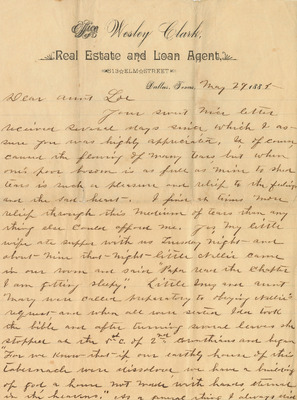 Office of Wesley Clark,
Real Estate and Loan Agent,
819 ELM STREET
Dallas, Texas, May 29 188
Dear Aunt Lou
Your sweet nice letter
received several days since which I as-
sure you was highly appreciated. It of course
caused the flowing of many tears but when
one's poor bosom is as full as mine to shed
tears is such a pleasure and relief to the feelings
and the sad heart. I find at times more
relief through this medium of tears than any
thing else could afford me. Yes my little
wife ate supper with us Tuesday night and
about nine that night little Nellie came
in our room and said Papa read the Chapter
I am getting sleepy." Little Lucy and aunt
Mary were called preparatory to obeying Nellie's
request and when all were seated Ida took
the bible and after turning several leaves she
stopped at the 5th c. of 2nd Corinthians and began
"For we know that if our earthly house of this
tabernacle were dissolved we have a building
of god a house not made with hands, eternal
in the heavens." As a general thing I always